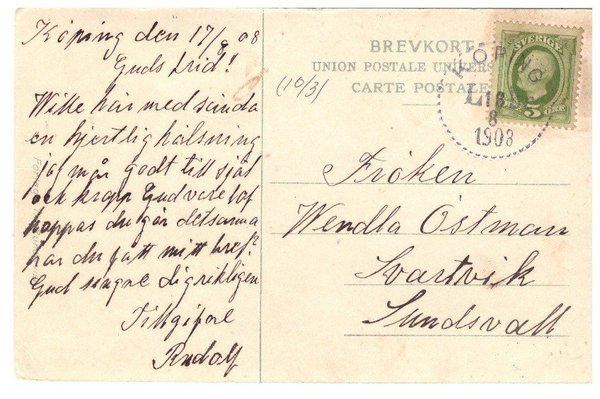 Köping den 17/8 08
Guds frid!
Wille här med sända
en hjertlig hälsning
jag mår godt till själ
och kropp Gud vare lof
hoppas du går detsamma
har du fått mitt bref?
Gud signe dig rikligen
Tillgifne
Rudolf
(10/3)
BREVKORT
UNION POSTALE UNIVERS
CARTE POSTALE
SVERIGE
5
KÖPING
18
8
1908
Fröken
Wendla Östman
Svartvik
Sundsvall